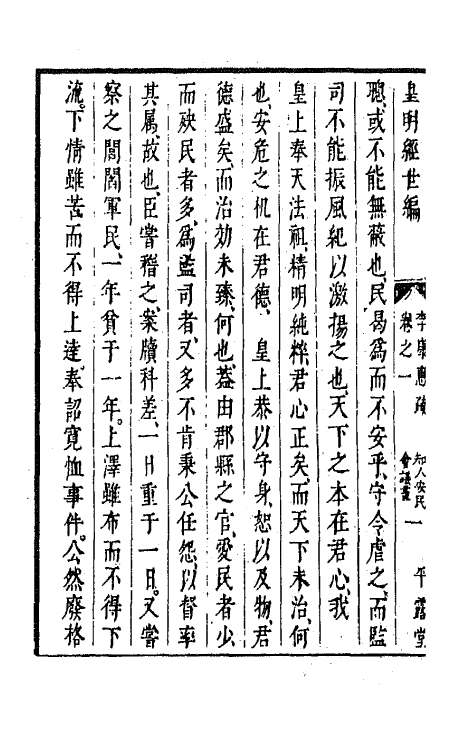 皇明經世編　李康惠疏　卷之一　知人安民　會議畫　一　平露堂
聰、或不能無蔽也、民曷為而不安乎、守令虐之、而監
司不能振風紀以激揚之也、天下之本在君心、我
皇上奉天法祖、精明純粹、君心正矣、而天下未治、何
也、安危之机在君德、　皇上恭以守身、恕以及物、君
德盛矣、而治効未臻、何也、蓋由郡縣之官、愛民者少、
而殃民者多、為監司者、又多不肯秉公任怨、以督率
其属、故也、臣嘗稽之、案牘科差、一日重于一日。又嘗
察之閭閻軍民、一年貧于一年。上澤雖布而不得下
流。下情雖苦而不得上達。奉詔寬恤事件。公然廢格